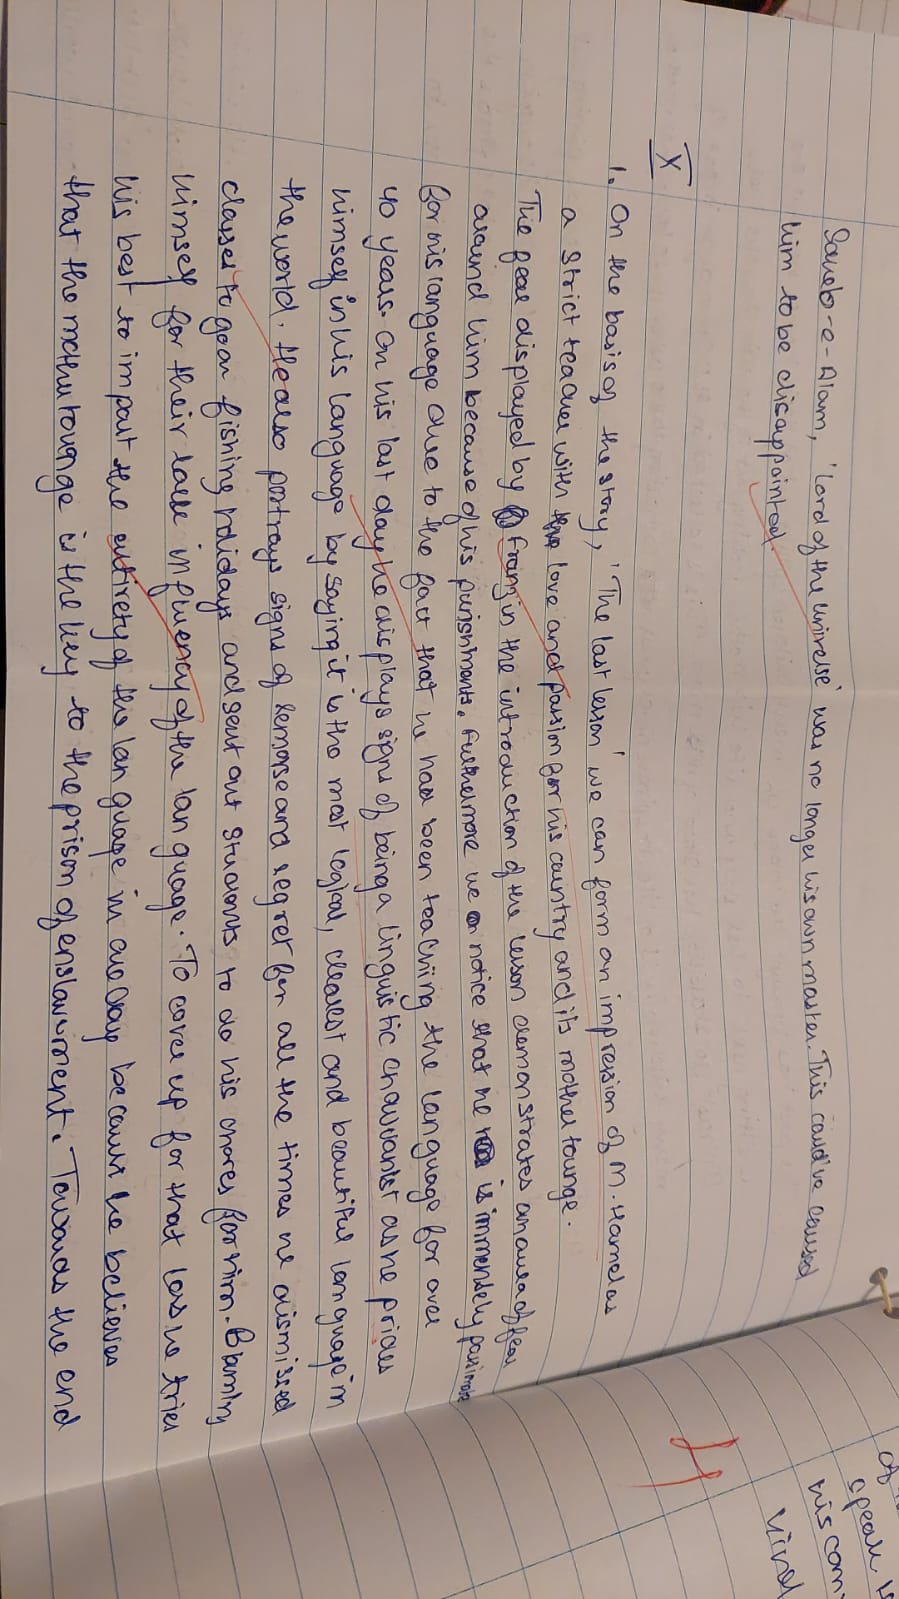 Saheb-e-Alam, 'Lord of the Universe' was no longer his own master. This could've caused
him to be disappointed.
X
1. On the basis of the story, 'The last lesson' we can form an impression of M. Hamel as
a strict teacher with love and passion for his country and its mother tounge.
The fear displayed by franz in the introduction of the lesson demonstrates an aura of fear
around him because of his punishments. Furthermore we notice that he is immensely passionate
for his language due to the fact that he had been teaching the language for over
40 years. On his last day he displays signs of being a linguistic chauvanist as he prides
himself in his language by saying it is the most logical, clearest and beautiful language in
the world. He also portrays signs of remorse and regret for all the times he dismissed
classes to go on fishing holidays and sent out students to do his chores for him. Blaming
himself for their lack in fluency of the language. To cover up for that loss he tries
his best to impart the entirety of the language in one day because he believes
that the mother tounge is the key to the prison of enslavement. Towards the end
4
of
speak
his com
kind